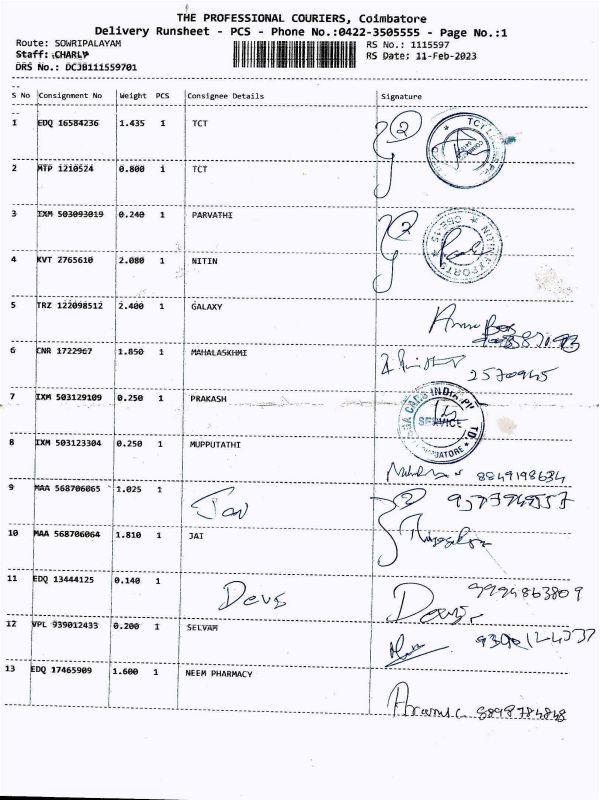 THE PROFESSIONAL COURIERS, Coimbatore
Delivery Runsheet - PCS - Phone No.:0422-3505555 - Page No.:1
Route: SOWRIPALAYAM RS No.: 1115597
Staff: CHARLY RS Date: 11-Feb-2023
DRS No.: DCJB111559701
S No Consignment No Weight PCS Consignee Details Signature
1 EDQ 16584236 1.435 1 TCT 2
TCT
2 MTP 1210524 0.800 1 TCT
3 IXM 503093019 0.240 1 PARVATHI 2
CBE-15
4 KVT 2765610 2.080 1 NITIN
5 TRZ 122098512 2.400 1 GALAXY
6 CNR 1722967 1.850 1 MAHALASKHMI
2570945
7 IXM 503129109 0.250 1 PRAKASH
CARS INDIA
SERVICE
8 IXM 503123304 0.250 1 MUPPUTATHI
8849198634
9 MAA 568706065 1.025 1 Jai 2
10 MAA 568706064 1.810 1 JAI
11 EDQ 13444125 0.140 1 Devs 9994863809
12 VPL 939012433 0.200 1 SELVAM
13 EDQ 17465909 1.600 1 NEEM PHARMACY